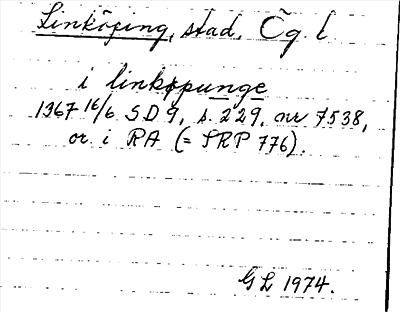 Linköping, stad, Ög. l
i linkøpunge
1367 16/6 SD 9, s. 229, nr 7538,
or i RA (= SRP 776).
GL 1974.